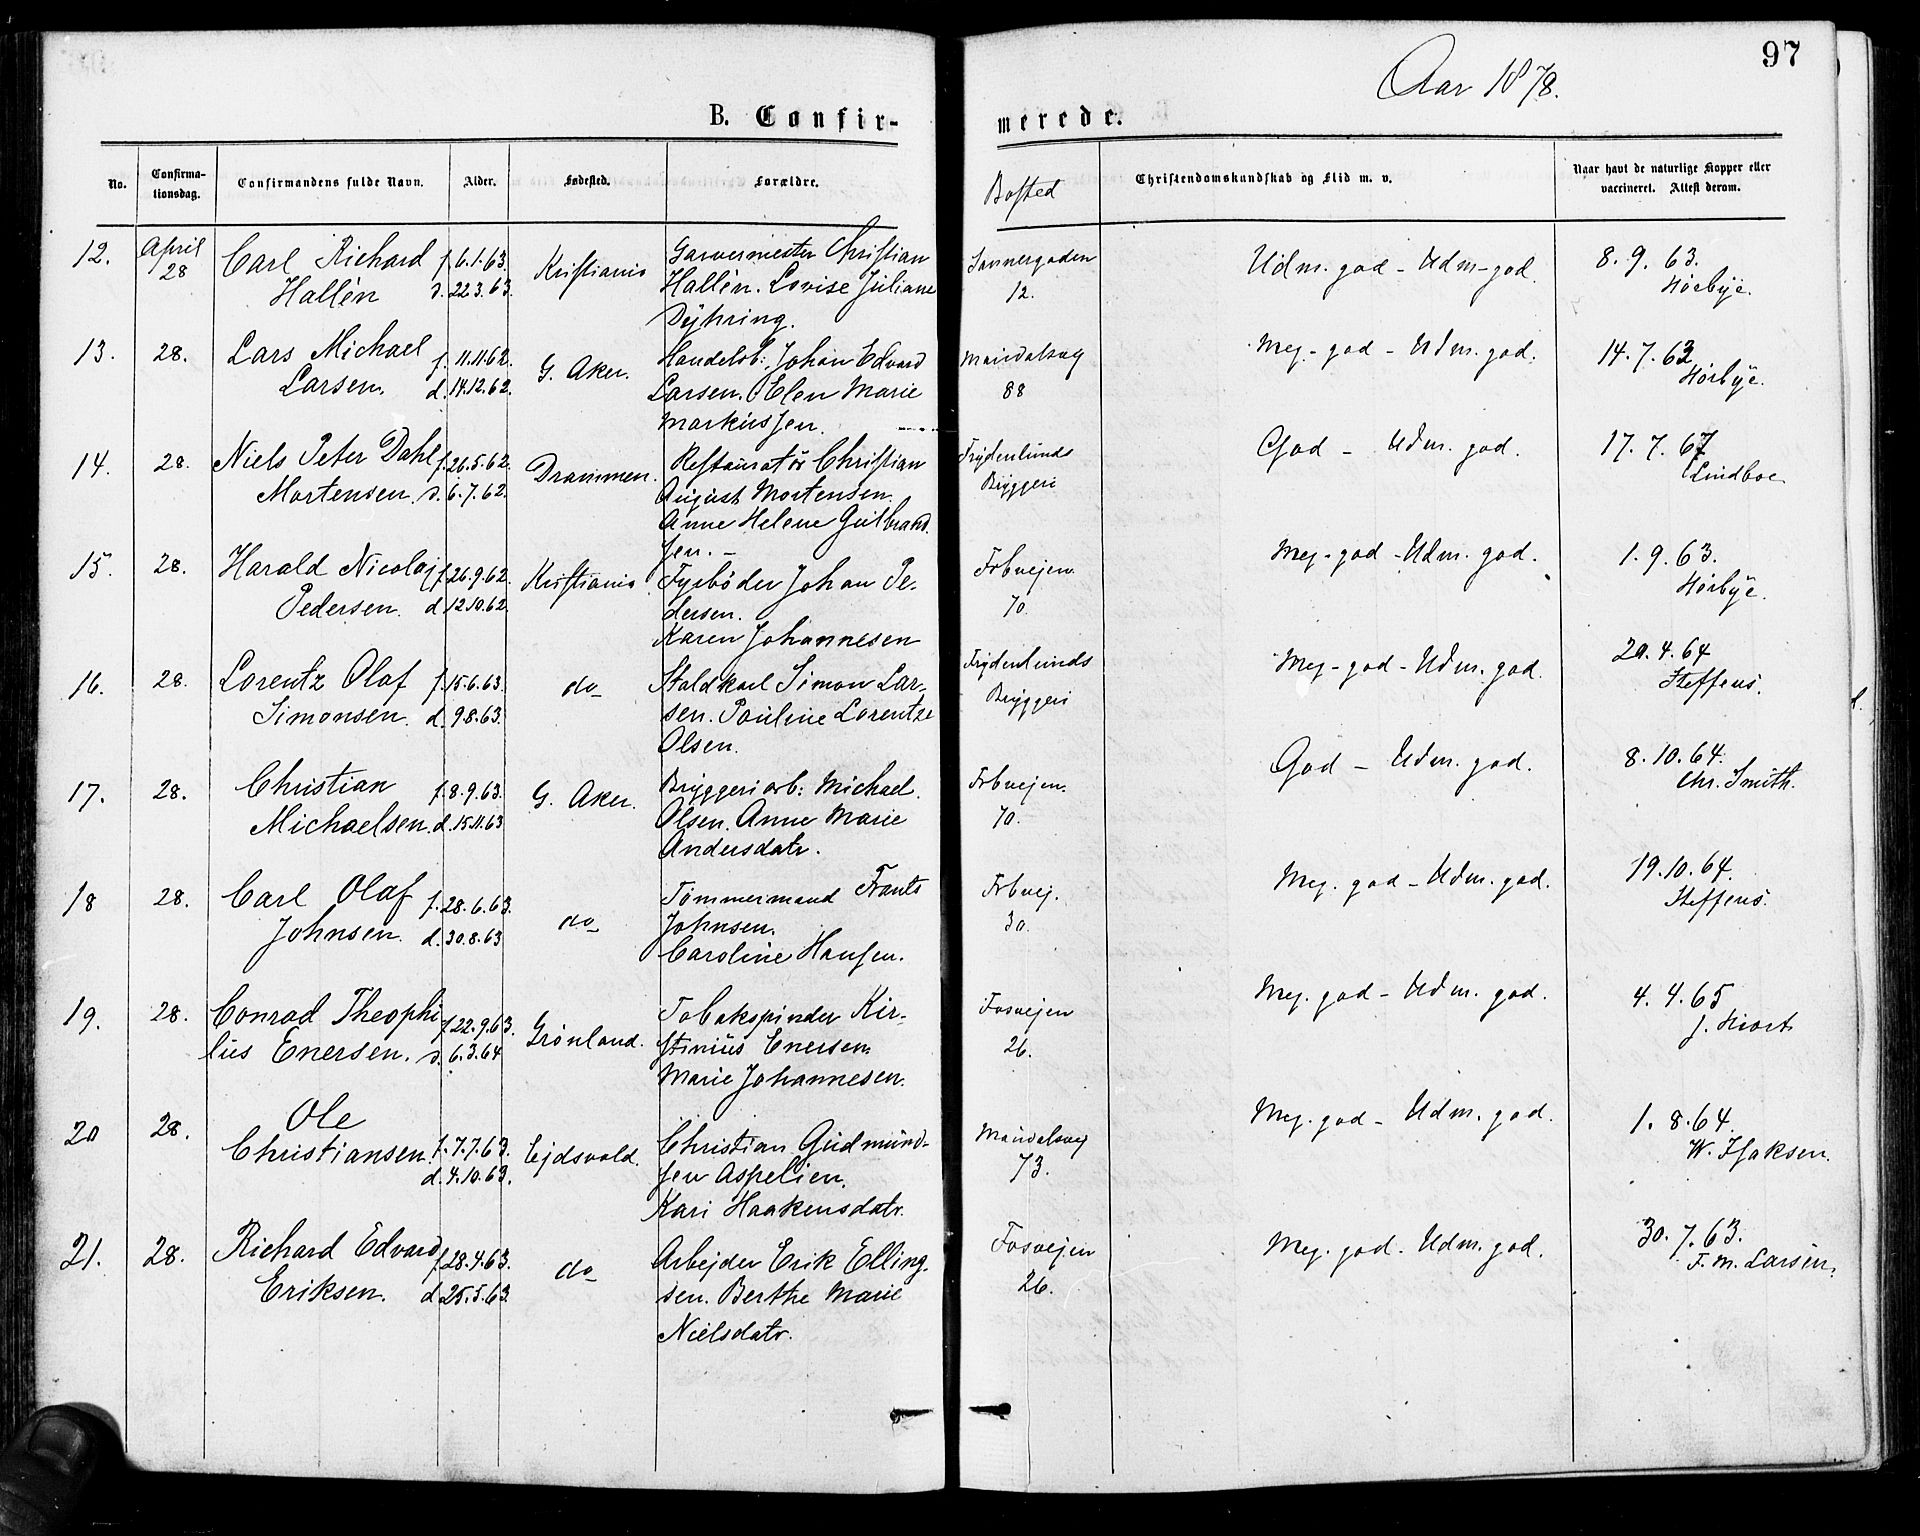 97
Aar 1878.
B. Confir-
merede.
No.
Confirma-
tionsdag.
Confirmandens fulde Navn.
Alder.
Fødested.
Forældre.
Bosted
Christendomskundskab og Flid m. v.
Naar havt de naturlige Kopper eller
vaccineret. Attest derom.
12. April Carl Richard f. 6.1.63. Kristiania Garvermester Christian Sannergaden Udm. god - Udm - god. 8. 9. 63.
28 Hallén d. 22.3.63. Hallén. Lovise Juliane 12. Hørbye.
Dÿhring.
13. 28. Lars Michael f. 11.11.62. G. Aker. Handelsb: Johan Edvard Maridalsveg Meg - god - Udm. god. 14. 7. 63
Larsen. d. 14.12.62. Larsen. Elen Marie 88 Hørbye.
Markussen.
14. 28. Niels Peter Dahl f. 26.5.62. Drammen. Restauratør Christian Frydenlunds God - Udm. god. 17. 7. 67
Mortensen. d. 6.7.62. August Mortensen. Bryggeri Lindboe
Anne Helene Gulbrand
sen. -
15. 28. Harald Nicolaj f. 26.9.62. Kristiania Fyrbøder Johan Pe- Frbvejen Meg - god - Udm. god. 1. 9. 63.
Pedersen. d. 12.10.62. dersen. 70. Hørbye.
Karen Johannesen
16. 28. Lorentz Olaf f. 15.6.63. do Staldkarl Simon Lar- Frydenlunds Meg - god - Udm. god. 20. 4. 64
Simonsen. d. 9.8.63. sen. Pauline Lorentze Bryggeri Steffens.
Olsen.
17. 28. Christian f. 8.9.63. G. Aker. Bryggeriarb: Michael Frbvejen. God - Udm. god. 8. 10. 64.
Michaelsen. d. 15.11.63 Olsen. Anne Marie 70. Chr. Smith.
Andersdatr.
18 28. Carl Olaf f. 28.6.63. do Tømmermand Frants Frbvej. Meg. god - Udm. god. 19. 10. 64.
Johnsen. d. 30.8.63 Johnsen. 30. Steffens.
Caroline Hansen.
19. 28. Conrad Theophi f. 22.9.63. Grønland. Tobakspinder Kir- Fosvejen Meg. god - Udm. god. 4. 4. 65
lus Enersen. d. 6.3.64 stinius Enersen 26. J. Hiort
Marie Johannesen.
20 28. Ole
Christiansen. f. 7.7.63. Ejdsvold. Christian Gudmund- Maridalsveg Meg. god - Udm. god. 1. 8. 64.
d. 4.10.63. sen Aspelien. 73. W. Isaksen.
Kari Haakensdatr.
21. 28. Richard Edvard f. 28.4.63. do Arbejder Erik Elling- Fosvejen Meg. god - Udm. god. 30. 7. 63.
Eriksen. d. 25.5.63. sen. Berthe Marie 26. F. M. Larsen.
Nielsdatr.